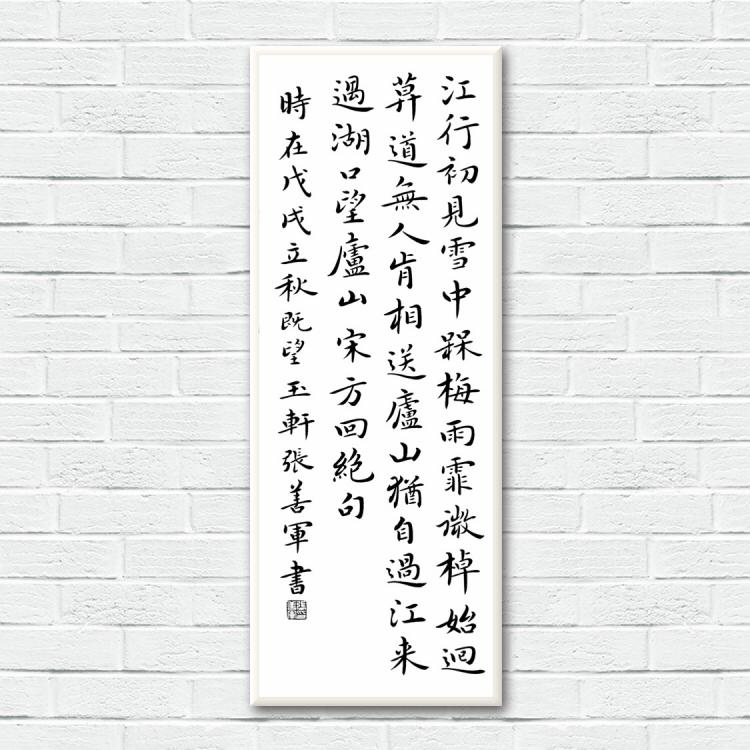 江行初見雪中槑梅雨霏微棹始迴
莫道無人肯相送廬山猶自過江来
過湖口望廬山宋方回絕句
時在戊戌立秋既望玉軒張善軍書